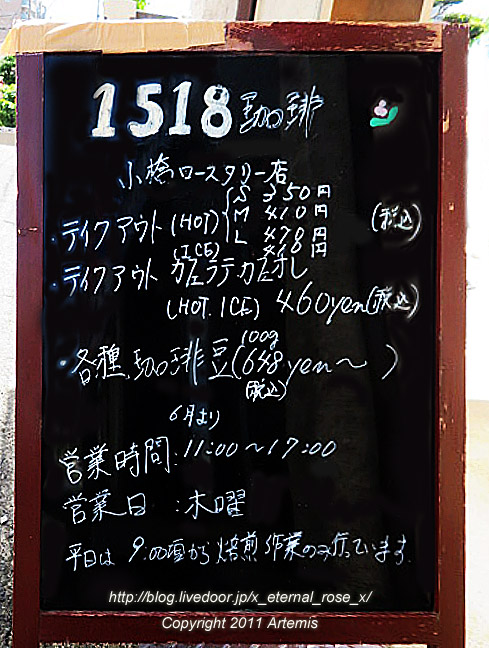 1518珈琲
小橋ロースタリー店
S 350円
・テイクアウト (HOT) M 410円 (税込)
L 478円
(ICE) 478円
・テイクアウト カフェラテ・カフェオレ
(HOT. ICE) 460yen (税込)
・各種珈琲豆 (100g 648yen〜)
(税込)
6月より
営業時間:11:00〜17:00
営業日 :木曜
平日は 9:00頃から焙煎作業のみ行っています
http://blog.livedoor.jp/x_eternal_rose_x/
Copyright 2011 Artemis